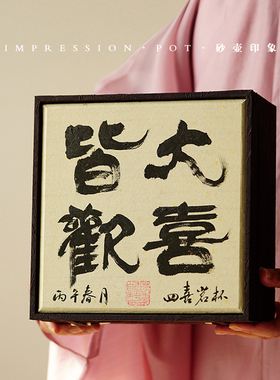 IMPRESSION · POT · 砂壺印象
大喜
皆歡
四喜岩杯
丙午春月